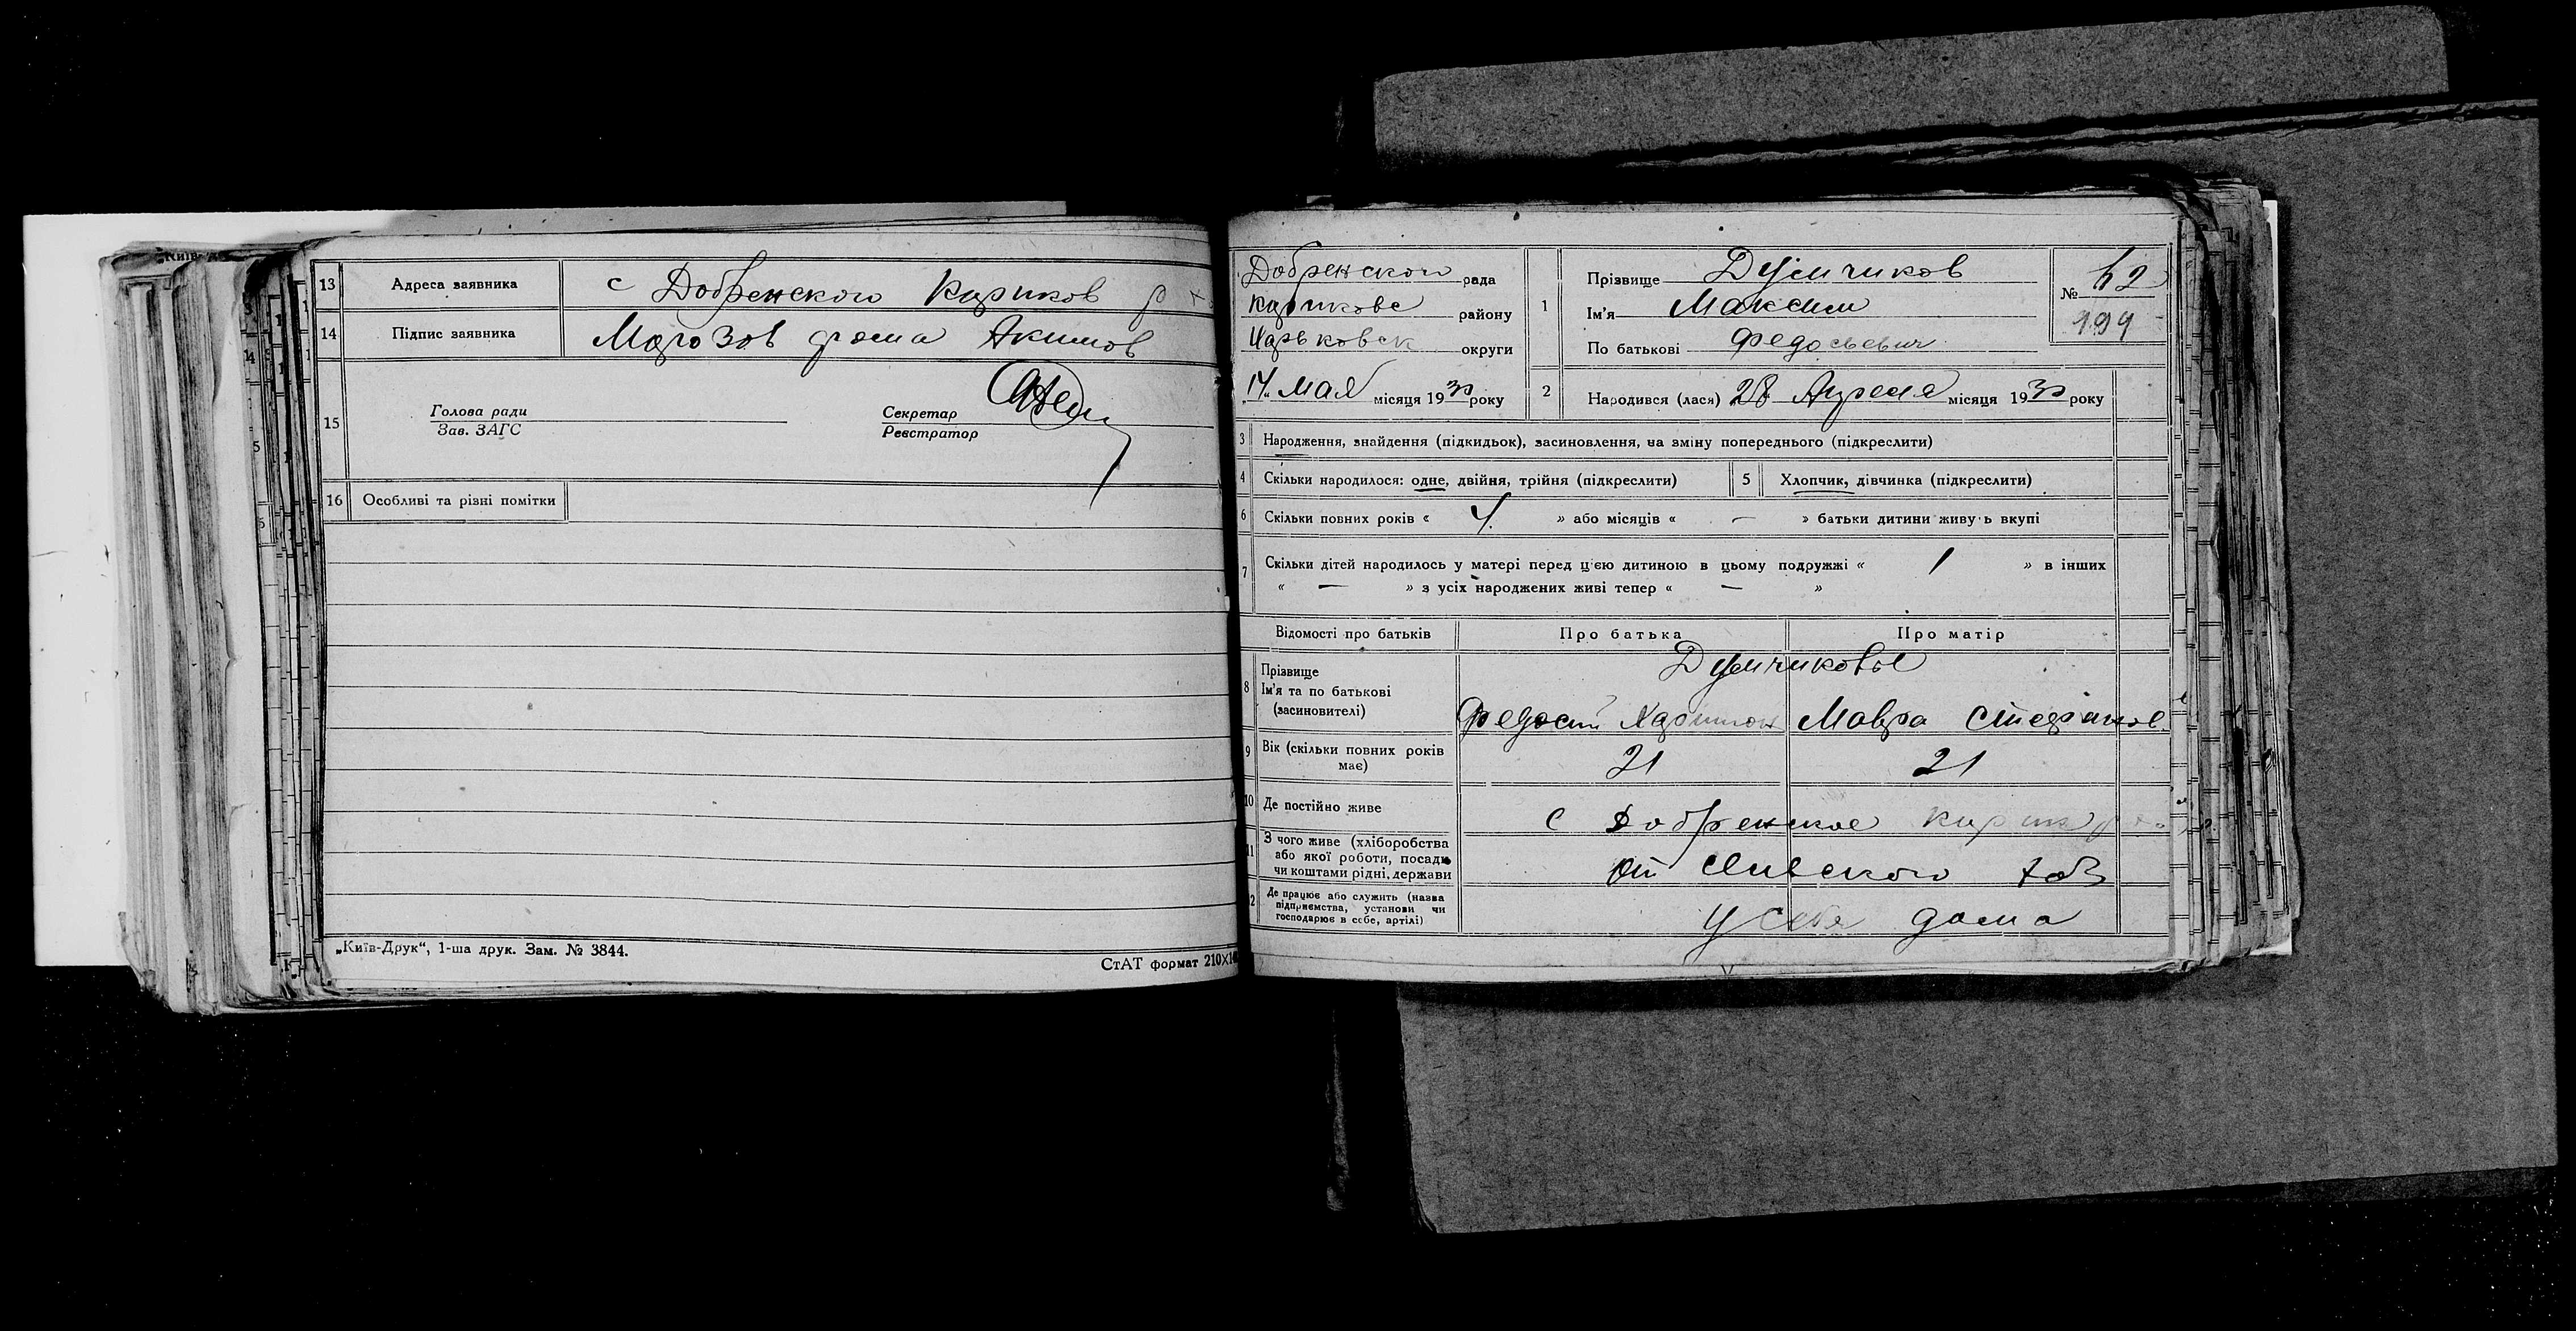 13 Адреса заявника с Добренского Кириков р
14 Підпис заявника Морозов фома Акимов
15 Голова ради Секретар
Зав. ЗАГС Реєстратор
16 Особливі та різні помітки
„Київ-Друк“, 1-ша друк. Зам. № 3844.
СтАТ формат 210×1
Добренского рада
района району
Харьковск округи
14 мая місяця 1930 року
1 Прізвище Думчиков
Ім'я Максим
По батькові Федосьевич
№ 62
194
2 Народився (лася) 28 Апреля місяця 1930 року
3 Народження, знайдення (підкидьок), засиновлення, на зміну попереднього (підкреслити)
4 Скільки народилося: одне, двійня, трійня (підкреслити) 5 Хлопчик, дівчинка (підкреслити)
6 Скільки повних років « 4 » або місяців « — » батьки дитини живуть вкупі
7 Скільки дітей народилось у матері перед цією дитиною в цьому подружжі « 1 » в інших
« — » з усіх народжених живі тепер « — »
Відомості про батьків Про батька Про матір
8 Прізвище Думчиковы
Ім'я та по батькові
(засиновителі) Федосий Мавра Стефанов
9 Вік (скільки повних років має) 21 21
10 Де постійно живе с Добренское
11 З чого живе (хліборобства
або якої роботи, посади
чи коштами рідні, держави от Сельского хоз
12 Де працює або служить (назва
підприємства, установи чи
господарює в себе, артілі) у себя дома